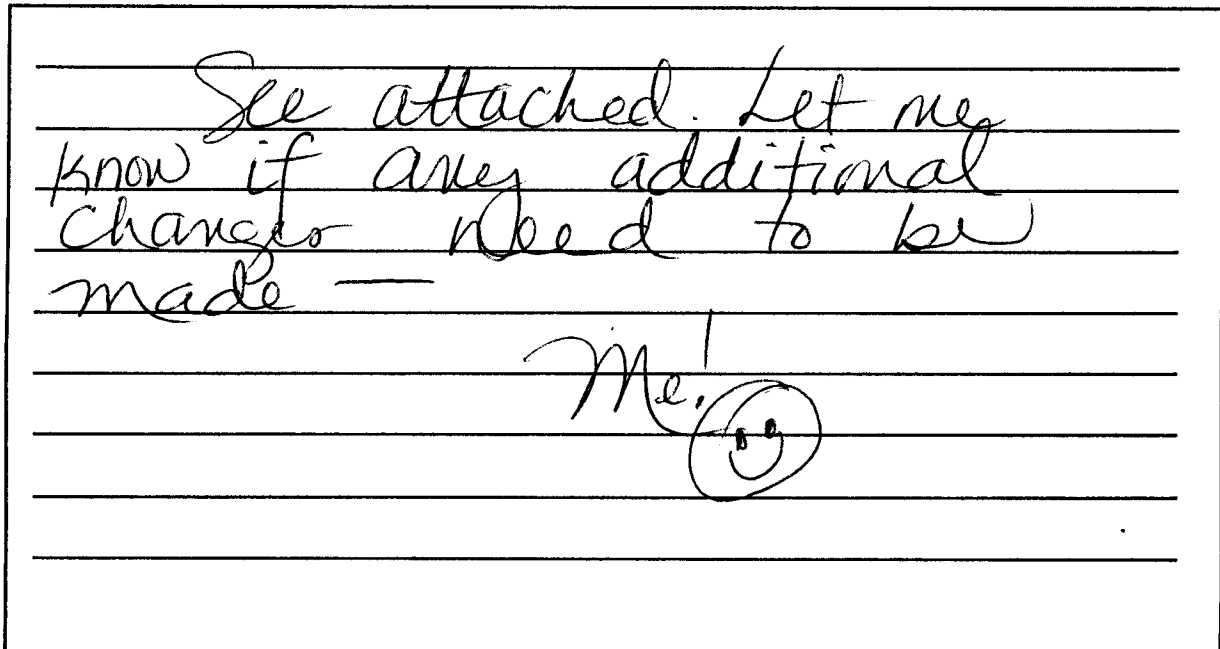 See attached. Let me
know if any additional
changes need to be
made —
Me!